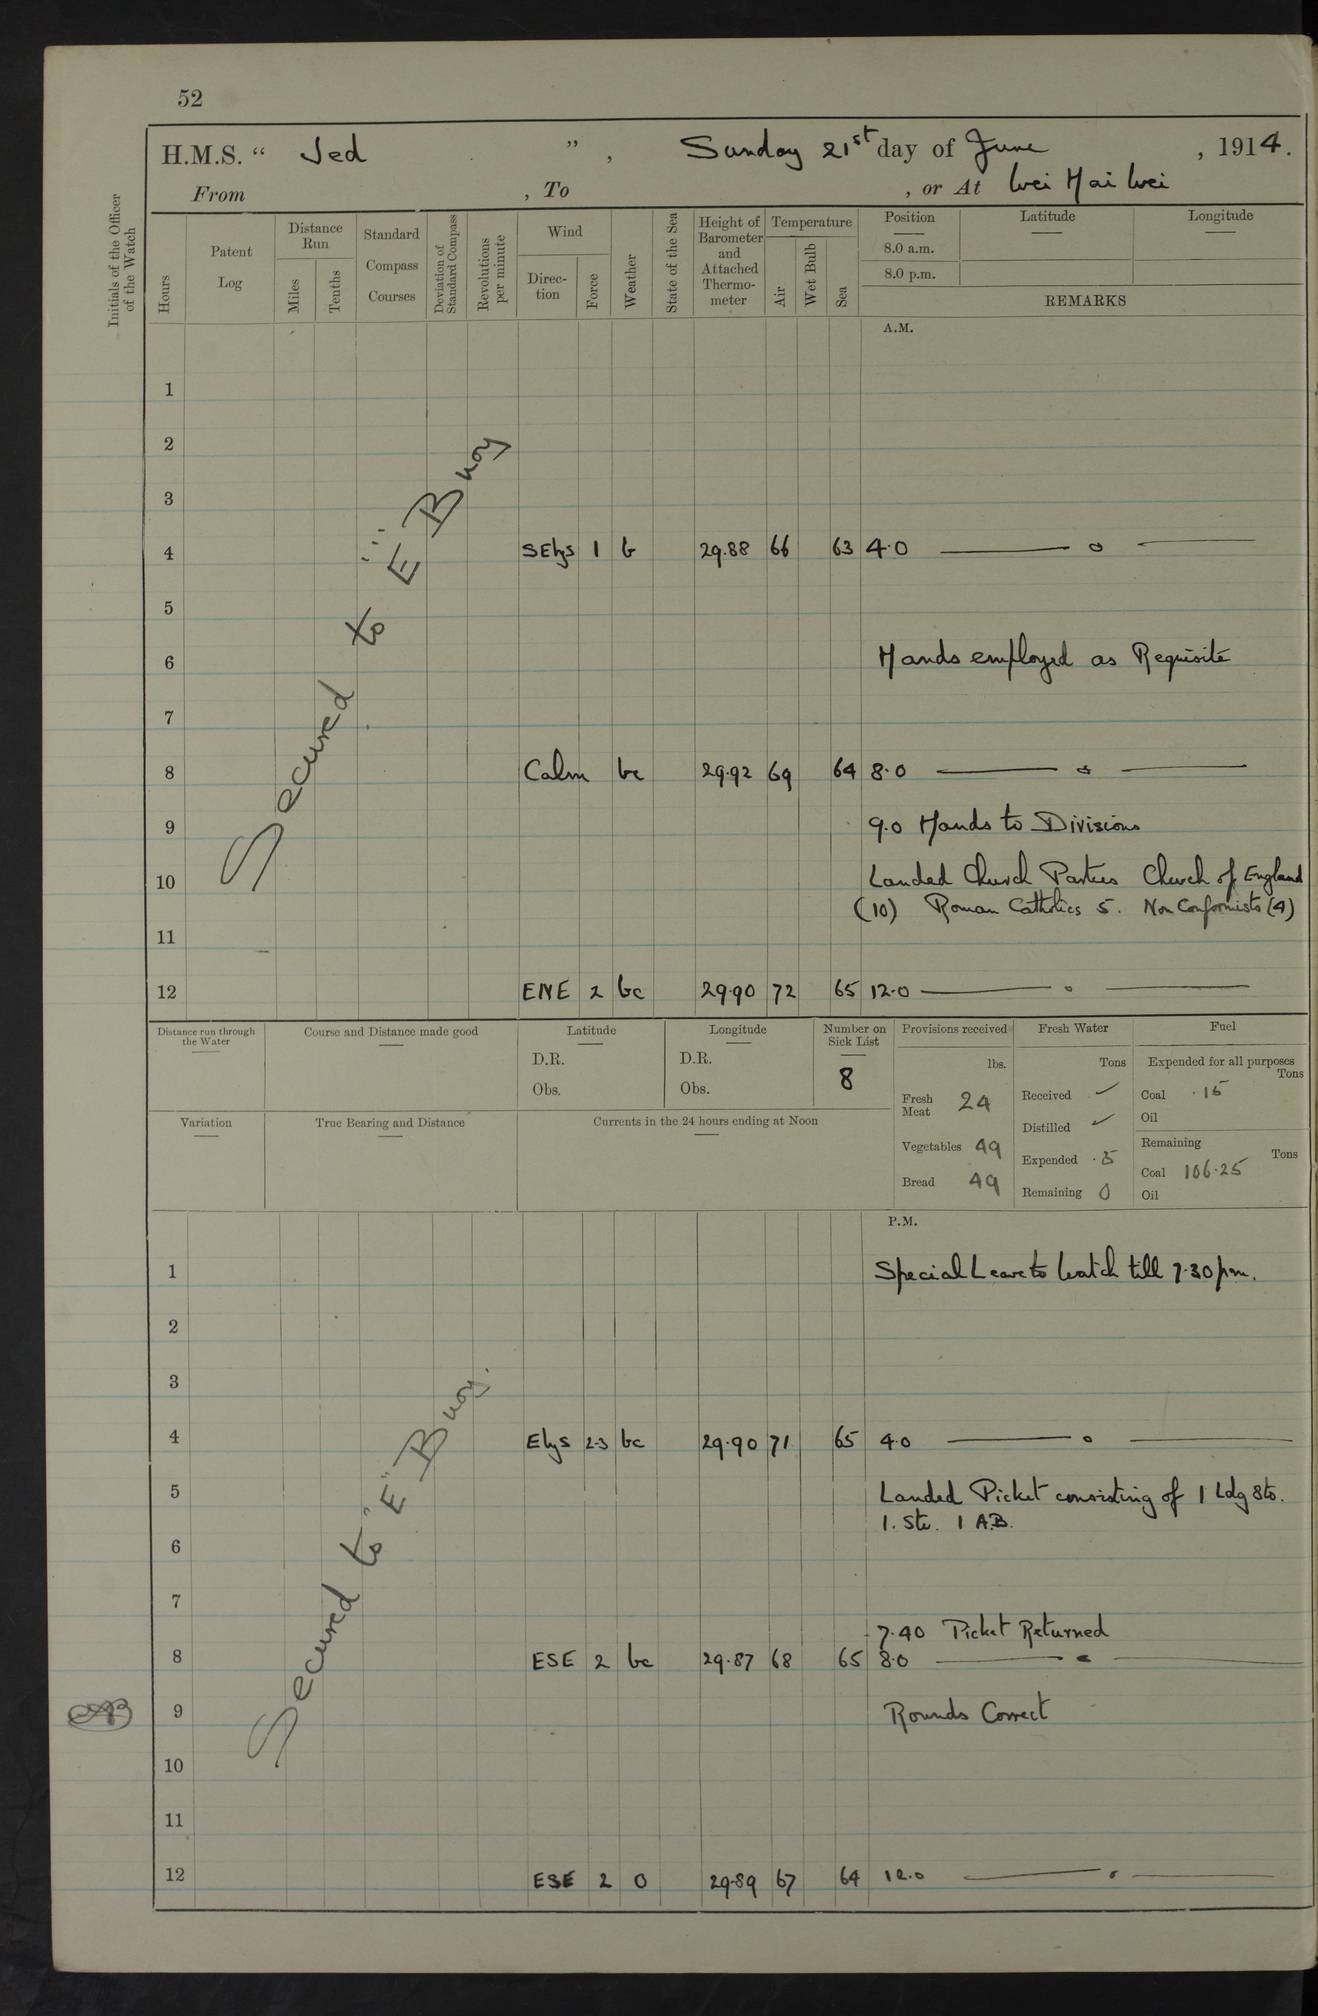 52
H.M.S. “ Jed ” , Sunday 21st day of June , 1914.
From , To , or At Wei Hai Wei
Initials of the Officer of the Watch
Hours
Patent Log
Distance Run
Miles
Tenths
Standard Compass Courses
Deviation of Standard Compass
Revolutions per minute
Wind
Direc-tion
Force
Weather
State of the Sea
Height of Barometer and Attached Thermo-meter
Temperature
Air
Wet Bulb
Sea
Position
8.0 a.m.
8.0 p.m.
Latitude
Longitude
REMARKS
A.M.
1
2
3
4 SElys 1 b 29.88 66 63 4.0 —— o ——
5
6 Hands employed as Requisite
7
8 Calm bc 29.92 69 64 8.0 —— o ——
9 9.0 Hands to Divisions
10 Landed Church Parties Church of England
(10) Roman Catholics 5. Non Conformists (4)
11
12 ENE 2 bc 29.90 72 65 12.0 —— o ——
Secured to "E" Buoy
Distance run through the Water
Course and Distance made good
Latitude
D.R.
Obs.
Longitude
D.R.
Obs.
Number on Sick List
8
Provisions received
lbs.
Fresh Meat 24
Vegetables 49
Bread 49
Fresh Water
Tons
Received ✓
Distilled ✓
Expended .5
Remaining 0
Fuel
Expended for all purposes
Tons
Coal .15
Oil
Remaining
Tons
Coal 106.25
Oil
Variation
True Bearing and Distance
Currents in the 24 hours ending at Noon
P.M.
1 Special Leave to Watch till 7.30 pm.
2
3
4 Elys 2.3 bc 29.90 71 65 4.0 —— o ——
5 Landed Picket consisting of 1 Ldg Sto.
1. Sto. 1 A.B.
6
7
7.40 Picket Returned
8 ESE 2 bc 29.87 68 65 8.0 —— o ——
9 Rounds Correct
10
11
12 ESE 2 O 29.89 67 64 12.0 —— o ——
Secured to "E" Buoy.